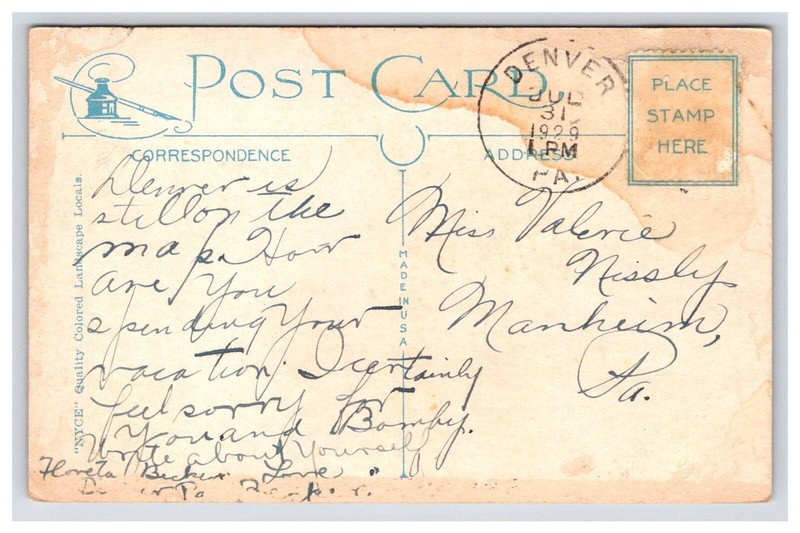 POST CARD
DENVER
JUL
31
1929
1 PM
PA.
PLACE
STAMP
HERE
CORRESPONDENCE
ADDRESS
Denver is
still on the
map. How
are you
spending your
vacation. I certainly
feel sorry for
you and Bomby.
Write about yourself
Floreta Becker Love
Pa.
Miss Valerie
Nissly
Manheim,
Pa.
MADE IN USA
"NYCE" Quality Colored Landscape Locals.